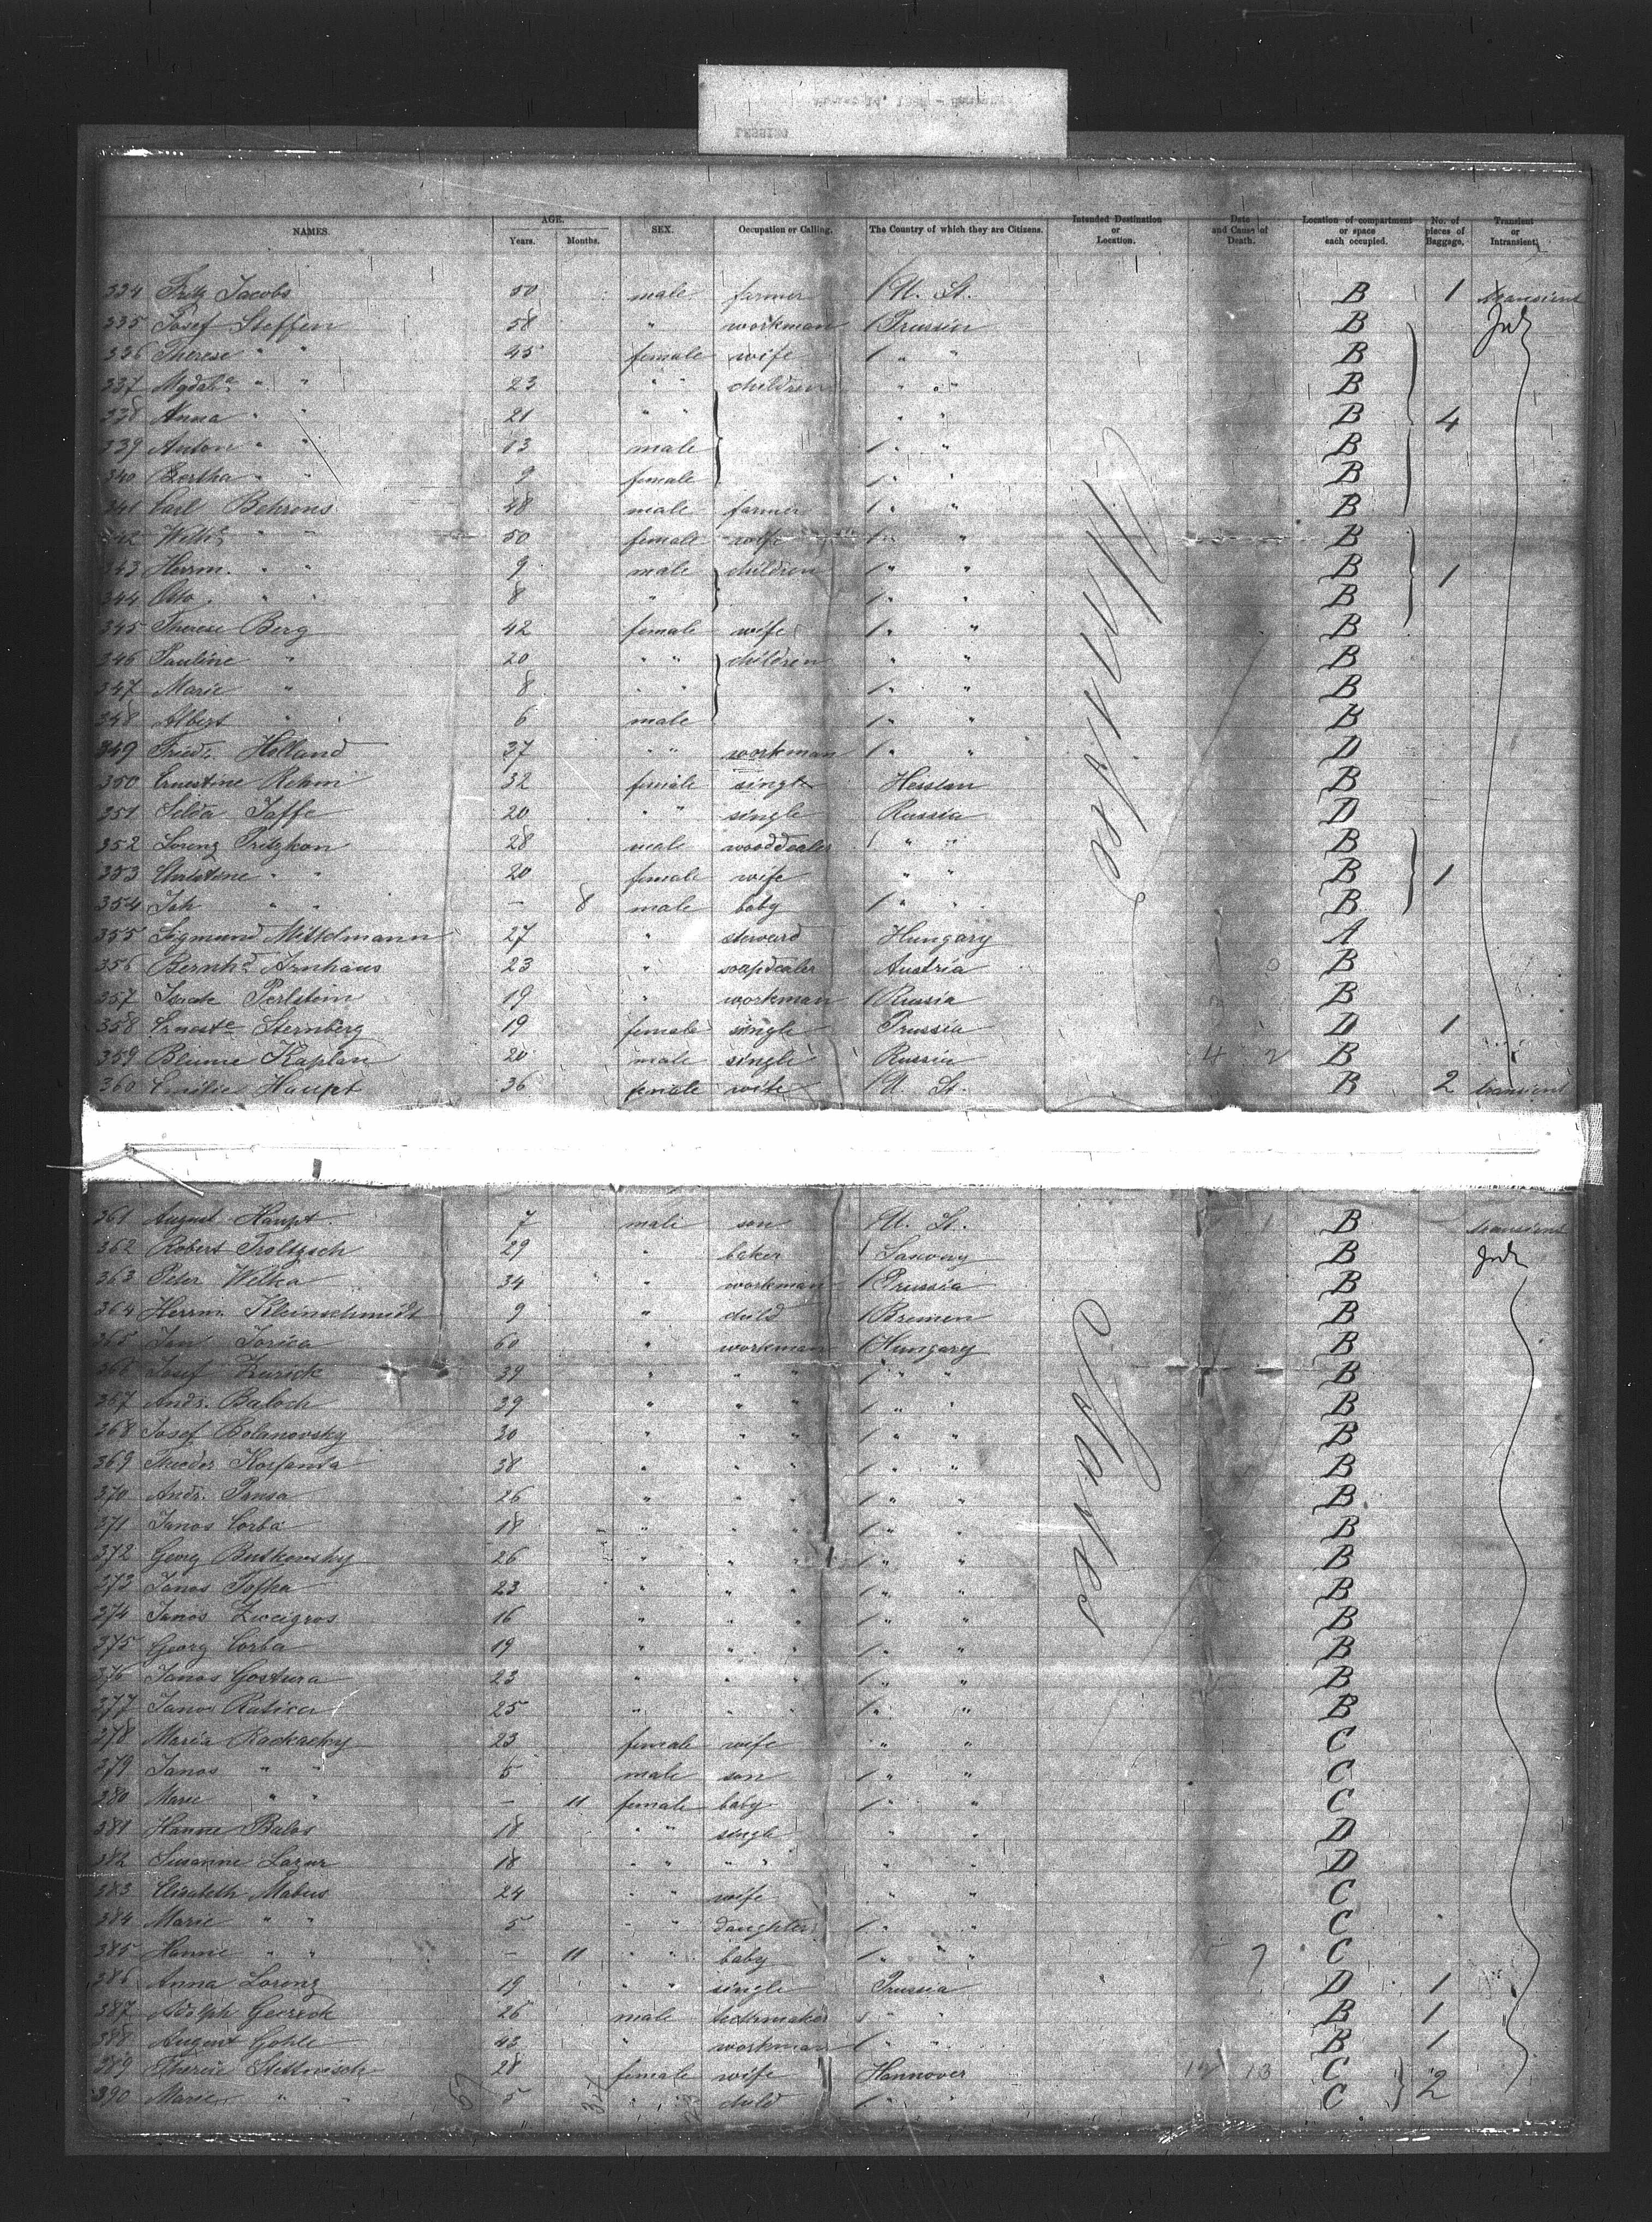 LESSING
NAMES. AGE. Years. Months. SEX. Occupation or Calling. The Country of which they are Citizens. Intended Destination or Location. Date and Cause of Death. Location of compartment or space each occupied. No. of pieces of Baggage. Transient or Intransient.
334 Fritz Jacobs 50 male farmer U. St. B 1 transient
335 Josef Steffen 58 " workman Prussia B
336 Therese " " 45 female wife " " B
337 Mgdale " " 23 " " children " " B
338 Anna " " 21 " " " " B 4
339 Anton " " 13 male " " B
340 Bertha " " 9 female " " B
341 Carl Behrens 48 male farmer " " B
342 " " 50 female wife " " B
343 Herrm. " " 9 male children " " B 1
344 Otto " " 8 " " " B
345 Therese Berg 42 female wife " " B
346 Pauline " 20 " " children " " B
347 Marie " 8 " " " " B
348 Albert " 6 male " " B
349 Friedr. Holland 37 " " workman " " D
350 Ernestine Rohm 32 female single Hessian B
351 Selda Jaffe 20 " " single Russia D
352 Lorenz Pritzkon 28 male wooddealer " " B
353 Christine " " 20 female wife " " B 1
354 Joh " " – 8 male baby " " B
355 Sigmund Mittelmann 27 " steward Hungary A
356 Bernhd Arnhaus 23 " soapdealer Austria B
357 Isack Perlstein 19 " workman Russia B
358 Erneste Sternberg 19 female single Prussia D 1
359 Blume Kaplan 20 male single Russia 4 2 B
360 Emilie Haupt 36 female wife U. St. B 2 transient
361 August Haupt 7 male son U. St. B transient
362 Robert Troltzsch 29 " baker Saxony B
363 Peter Welka 34 " workman Prussia B
364 Herrm. Kleinschmidt 9 " child Bremen B
365 Jan Jorica 60 " workman Hungary B
366 Josef Kusick 39 " " " " " B
367 Andr. Baloch 29 " " " " " B
368 Josef Bolanovsky 30 " " " " " B
369 38 " " " " " B
370 Andr. Pausa 26 " " " " " B
371 Janos Corba 18 " " " " " B
372 Georg Butkovsky 26 " " " " " B
373 Janos Tofka 23 " " " " " B
374 Janos Zweigros 16 " " " " " B
375 Georg Corba 19 " " " " " B
376 Janos Gostura 23 " " " " " B
377 Janos Ratica 25 " " " " " B
378 Maria Rackacky 23 female wife " " C
379 Janos " " 5 male son " " C
380 Marie " " – 11 female baby " " C
381 Hanne Balas 18 " " single " " D
382 Susanne Lazur 18 " " " " " " D
383 Elisabeth Mabus 24 " " wife " " C
384 Marie " " 5 " " daughter " " C
385 Hanne " " – 11 " " baby " " C
386 Anna Lorenz 19 " " single Prussia D 1
387 Adolph 26 male " " B 1
388 August Gohle 43 " workman " " B 1
389 28 female wife Hannover 12 13 C 2
390 Marie " " 5 " " child " " C